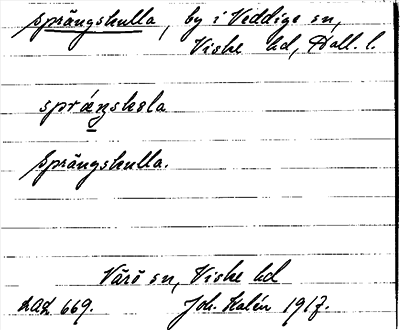 Sprängskulla, by i Veddige sn,
Viske hd, Hall. l.
språŋskʊla
Sprängskulla.
Värö sn, Viske hd
669. Joh. Kalén 1917.